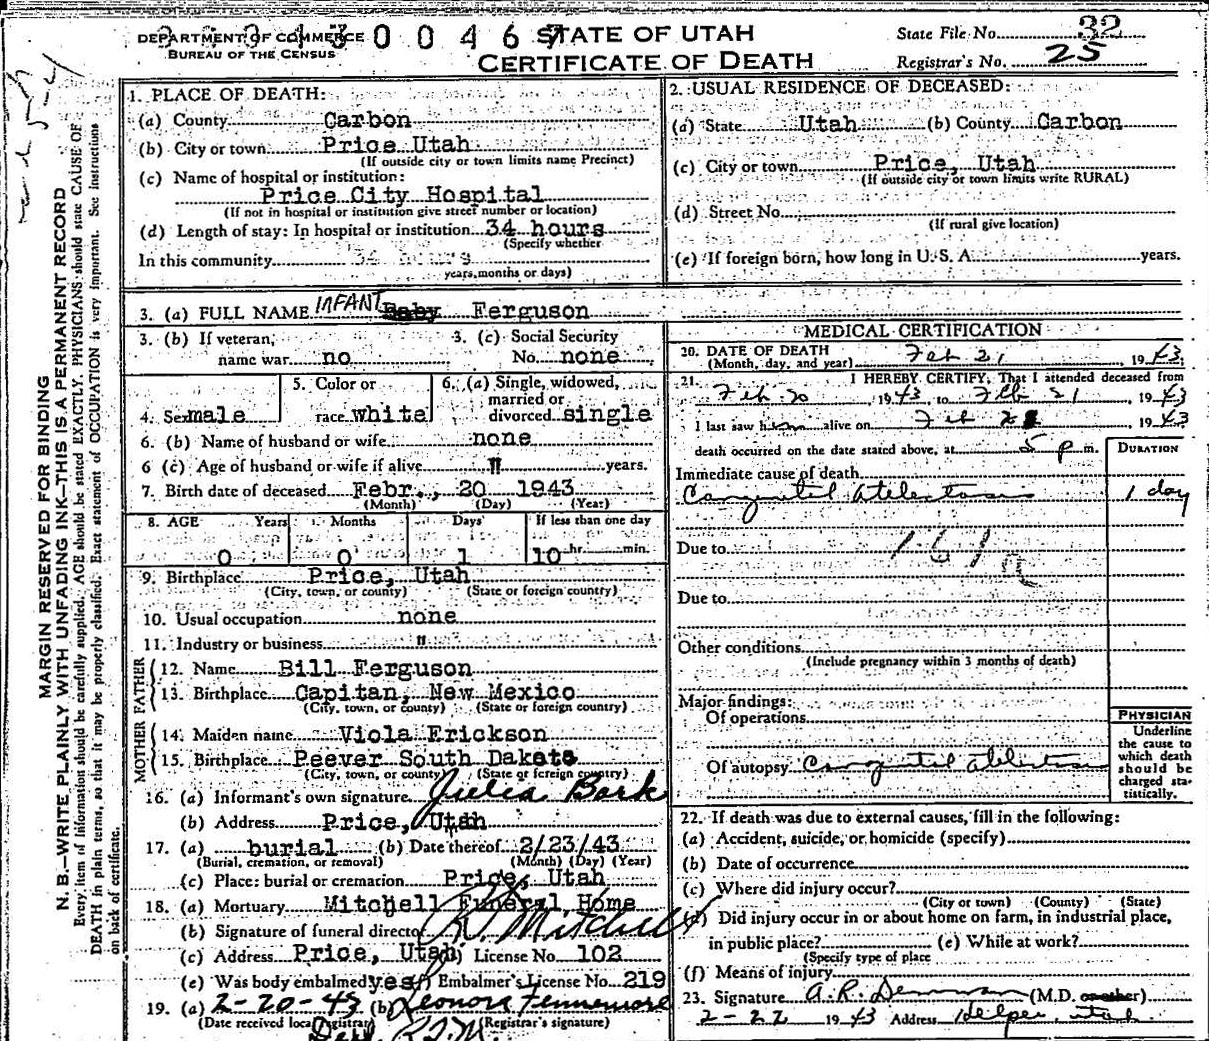 DEPARTMENT OF COMMERCE
BUREAU OF THE CENSUS
0 0 4 6
STATE OF UTAH
CERTIFICATE OF DEATH
State File No. 32
Registrar's No. 25
MARGIN RESERVED FOR BINDING
N. B.—WRITE PLAINLY WITH UNFADING INK—THIS IS A PERMANENT RECORD
Every item of information should be carefully supplied. AGE should be stated EXACTLY. PHYSICIANS should state CAUSE OF
DEATH in plain terms, so that it may be properly classified. Exact statement of OCCUPATION is very important. See instructions
on back of certificate.
1. PLACE OF DEATH:
(a) County Carbon
(b) City or town Price Utah
(If outside city or town limits name Precinct)
(c) Name of hospital or institution:
Price City Hospital
(If not in hospital or institution give street number or location)
(d) Length of stay: In hospital or institution 34 hours
(Specify whether
In this community 34 hours
years, months or days)
2. USUAL RESIDENCE OF DECEASED:
(a) State Utah (b) County Carbon
(c) City or town Price, Utah
(If outside city or town limits write RURAL)
(d) Street No.
(If rural give location)
(e) If foreign born, how long in U. S. A. years.
3. (a) FULL NAME INFANT Baby Ferguson
3. (b) If veteran, name war no
3. (c) Social Security No. none
4. Sex male
5. Color or race white
6. (a) Single, widowed, married or divorced single
6. (b) Name of husband or wife none
6 (c) Age of husband or wife if alive " years.
7. Birth date of deceased Febr., 20 1943
(Month) (Day) (Year)
8. AGE Years Months Days If less than one day
0 0 1 10 hr. min.
9. Birthplace Price, Utah
(City, town, or county) (State or foreign country)
10. Usual occupation none
11. Industry or business "
FATHER
12. Name Bill Ferguson
13. Birthplace Capitan, New Mexico
(City, town, or county) (State or foreign country)
MOTHER
14. Maiden name Viola Erickson
15. Birthplace Peever South Dakota
(City, town, or county) (State or foreign country)
16. (a) Informant's own signature Julia Bork
(b) Address Price, Utah
17. (a) burial (b) Date thereof 2/23/43
(Burial, cremation, or removal) (Month) (Day) (Year)
(c) Place: burial or cremation Price, Utah
18. (a) Mortuary Mitchell Funeral Home
(b) Signature of funeral director Mitchell
(c) Address Price, Utah License No. 102
(e) Was body embalmed yes Embalmer's License No. 219
19. (a) 2-20-43 (b) Leonora Fennemore
(Date received local registrar) (Registrar's signature)
MEDICAL CERTIFICATION
20. DATE OF DEATH Feb 21, 1943
(Month, day, and year)
21. I HEREBY CERTIFY, That I attended deceased from
Feb 20 1943, to Feb 21, 1943
I last saw him alive on Feb 21, 1943
death occurred on the date stated above, at 5 p m.
DURATION
Immediate cause of death
Congenital Atelectasis 1 day
Due to 161a
Due to
Other conditions
(Include pregnancy within 3 months of death)
Major findings:
Of operations
Of autopsy Congenital Atelectasis
PHYSICIAN
Underline
the cause to
which death
should be
charged sta-
tistically.
22. If death was due to external causes, fill in the following:
(a) Accident, suicide, or homicide (specify)
(b) Date of occurrence
(c) Where did injury occur?
(City or town) (County) (State)
(d) Did injury occur in or about home on farm, in industrial place,
in public place? (e) While at work?
(Specify type of place
(f) Means of injury
23. Signature A. R. Demman (M.D. or other)
2-22 1943 Address Helper, Utah